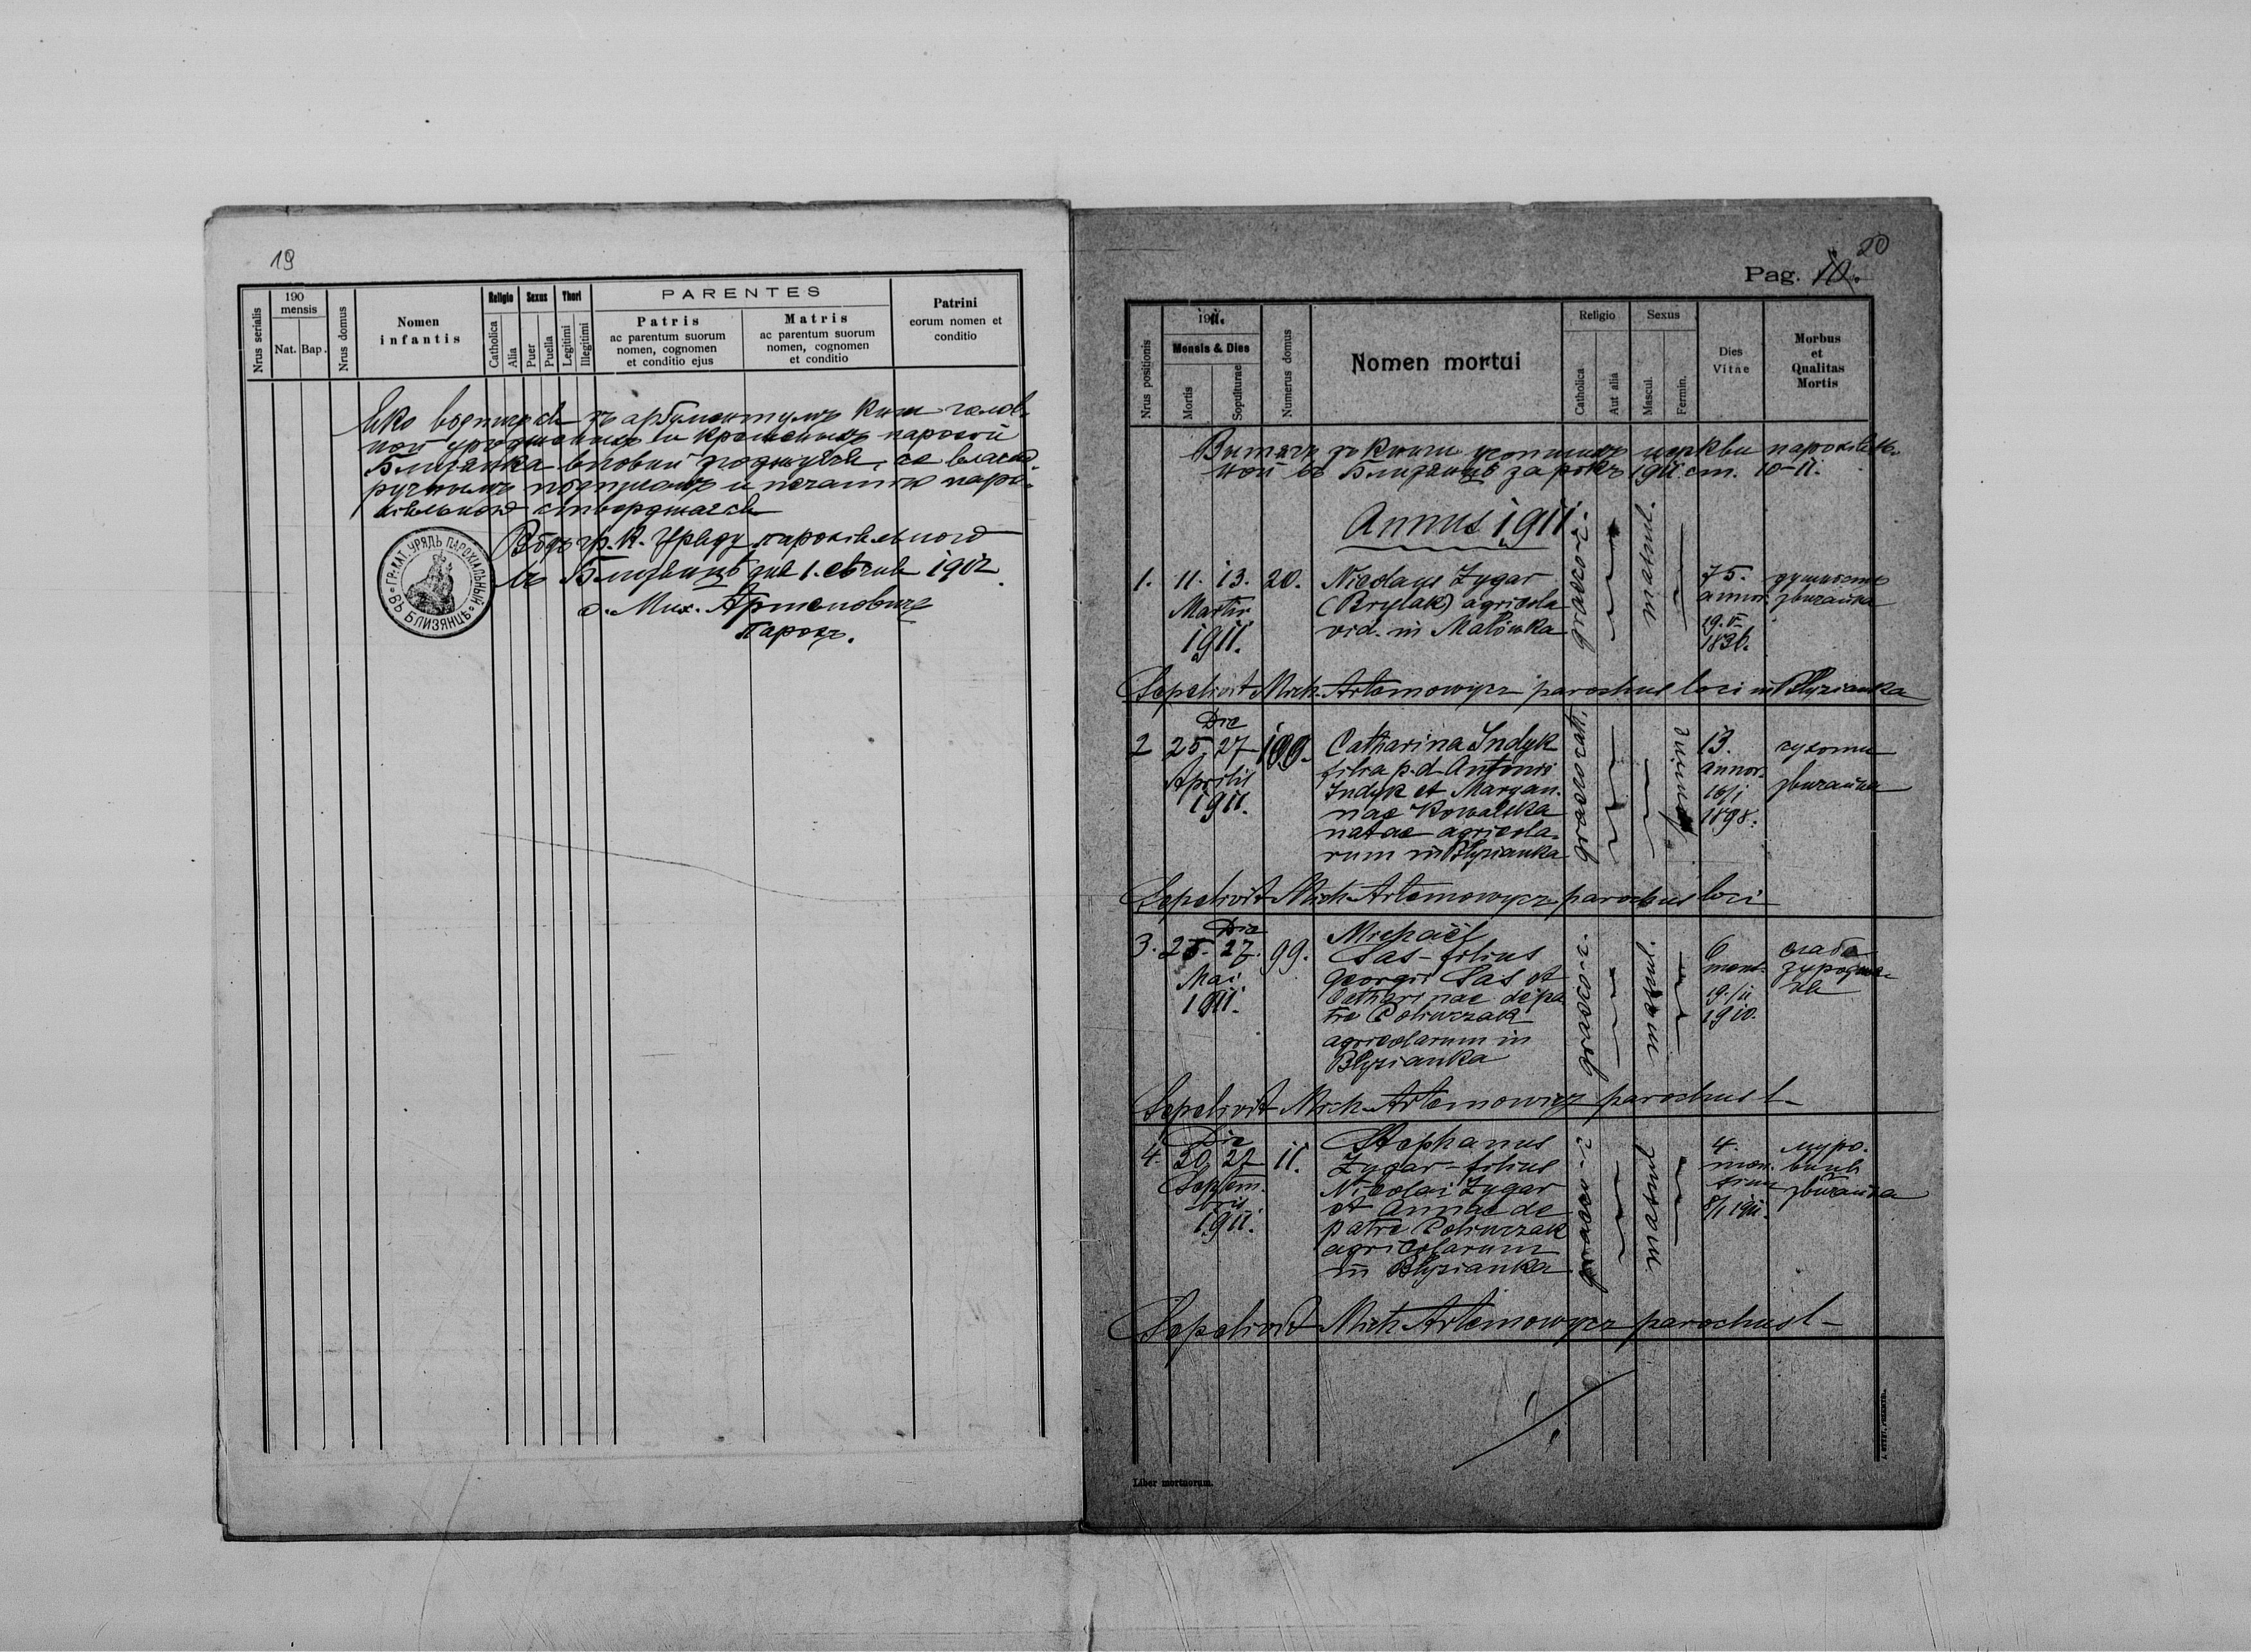 19
Nrus serialis
190
mensis
Nat. Bap.
Nrus domus
Nomen
infantis
Religio
Catholica
Alia
Sexus
Puer
Puella
Thori
Legitimi
Illegitimi
PARENTES
Patris
ac parentum suorum
nomen, cognomen
et conditio ejus
Matris
ac parentum suorum
nomen, cognomen
et conditio
Patrini
eorum nomen et
conditio
Яко
крещеныхъ парохіи
Близянка
ручнымъ подписомъ и печатію паро-
хіяльною стверджаєся
Вôдъ гр. к. Уряду парохіяльного
въ Близянцѣ дня 1. сѣчня 1912
о. Мих. Артемовичъ
Парохъ.
ГР. КАТ. УРЯДЪ ПАРОХІАЛЬНЫЙ
ВЪ БЛИЗЯНЦѢ
20
Pag. 10.
Nrus positionis
1911.
Mensis & Dies
Mortis
Sepulturae
Numerus domus
Nomen mortui
Religio
Catholica
Aut alia
Sexus
Mascul.
Femin.
Dies
Vitae
Morbus
et
Qualitas
Mortis
Вытягъ зъ книги усопшихъ церкви парохіяль-
ной въ Близянцѣ за рокъ 1911 ст. 10-11.
Annus 1911.
1. 11. 13. 20. Nicolaus Zygar
Martii (Brylak) agricola
1911. vid. in Malówka
graeco-c.
mascul.
75.
annor.
19.VI
1836.
звичайна
Sepelivit Mich. Artemowycz parochus loci in Blyzianka
Die
2 25. 27 100. Catharina Indyk
Aprilis filia p. d. Antonii
1911. Indyk et Maryan-
nae Kowalska
natae agricola-
rum in Blyzianka
graeco cath.
feminini
13.
annor.
16/1
1898.
сухоти
звичайна
Sepelivit Mich Artemowycz parochus loci
Die
3. 25. 27. 99. Michaël
Mai Sas - filius
1911. Georgii Sas et
Catharinae de pa
tre Coliwczak
agricolarum in
Blyzianka
graeco-c.
mascul.
6
mens.
19./11
1910.
слабо
Sepelivit Mich. Artemowicz parochus l-
Die
4. 20 22 11. Stephanus
Septem- Zygar - filius
bris Nicolai Zygar
1911. et Annae de
patre Coliwczak
agricolarum
in Blyzianka
graeco-c
mascul
4.
men-
sium
8/1 1911.
звичайна
Sepelivit Mich Artemowycz parochus l-
Liber mortuorum.